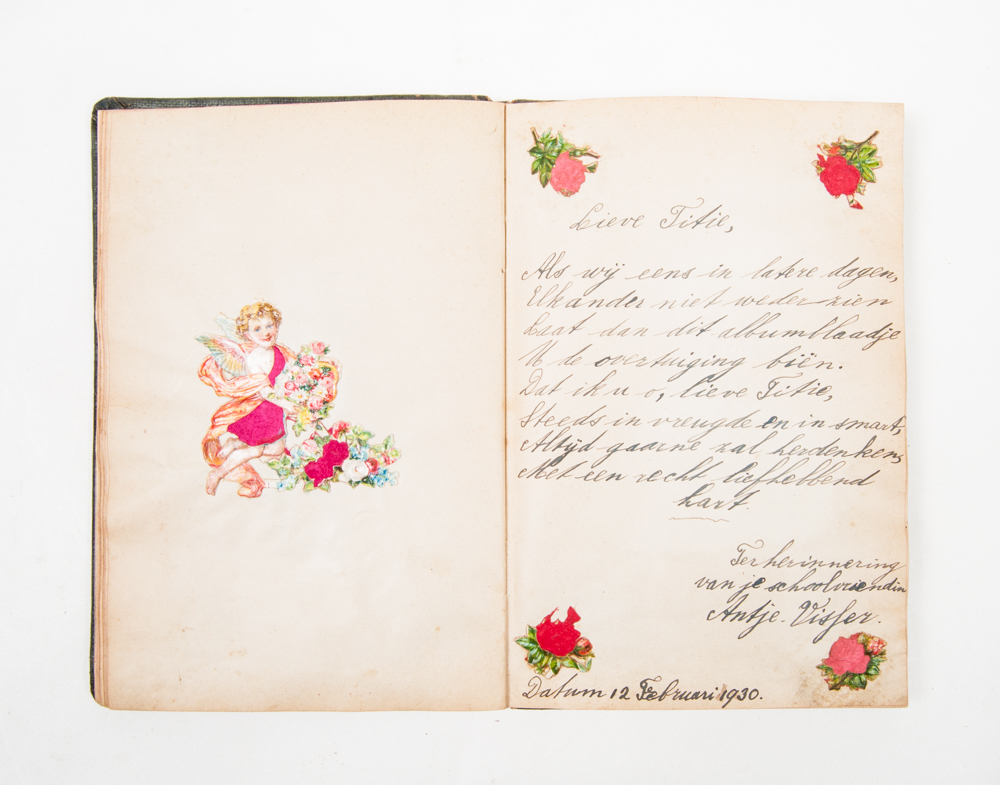 Lieve Titie,
Als wij eens in latere dagen,
Elkander niet weder zien
Laat dan dit albumblaadje
U de overtuiging biën.
Dat ik u o, lieve Titie,
Steeds in vreugde en in smart,
Altijd gaarne zal herdenken,
Met een recht liefhebbend
hart.
Ter herinnering
van je schoolvriendin
Antje. Visser.
Datum 12 Februari 1930.